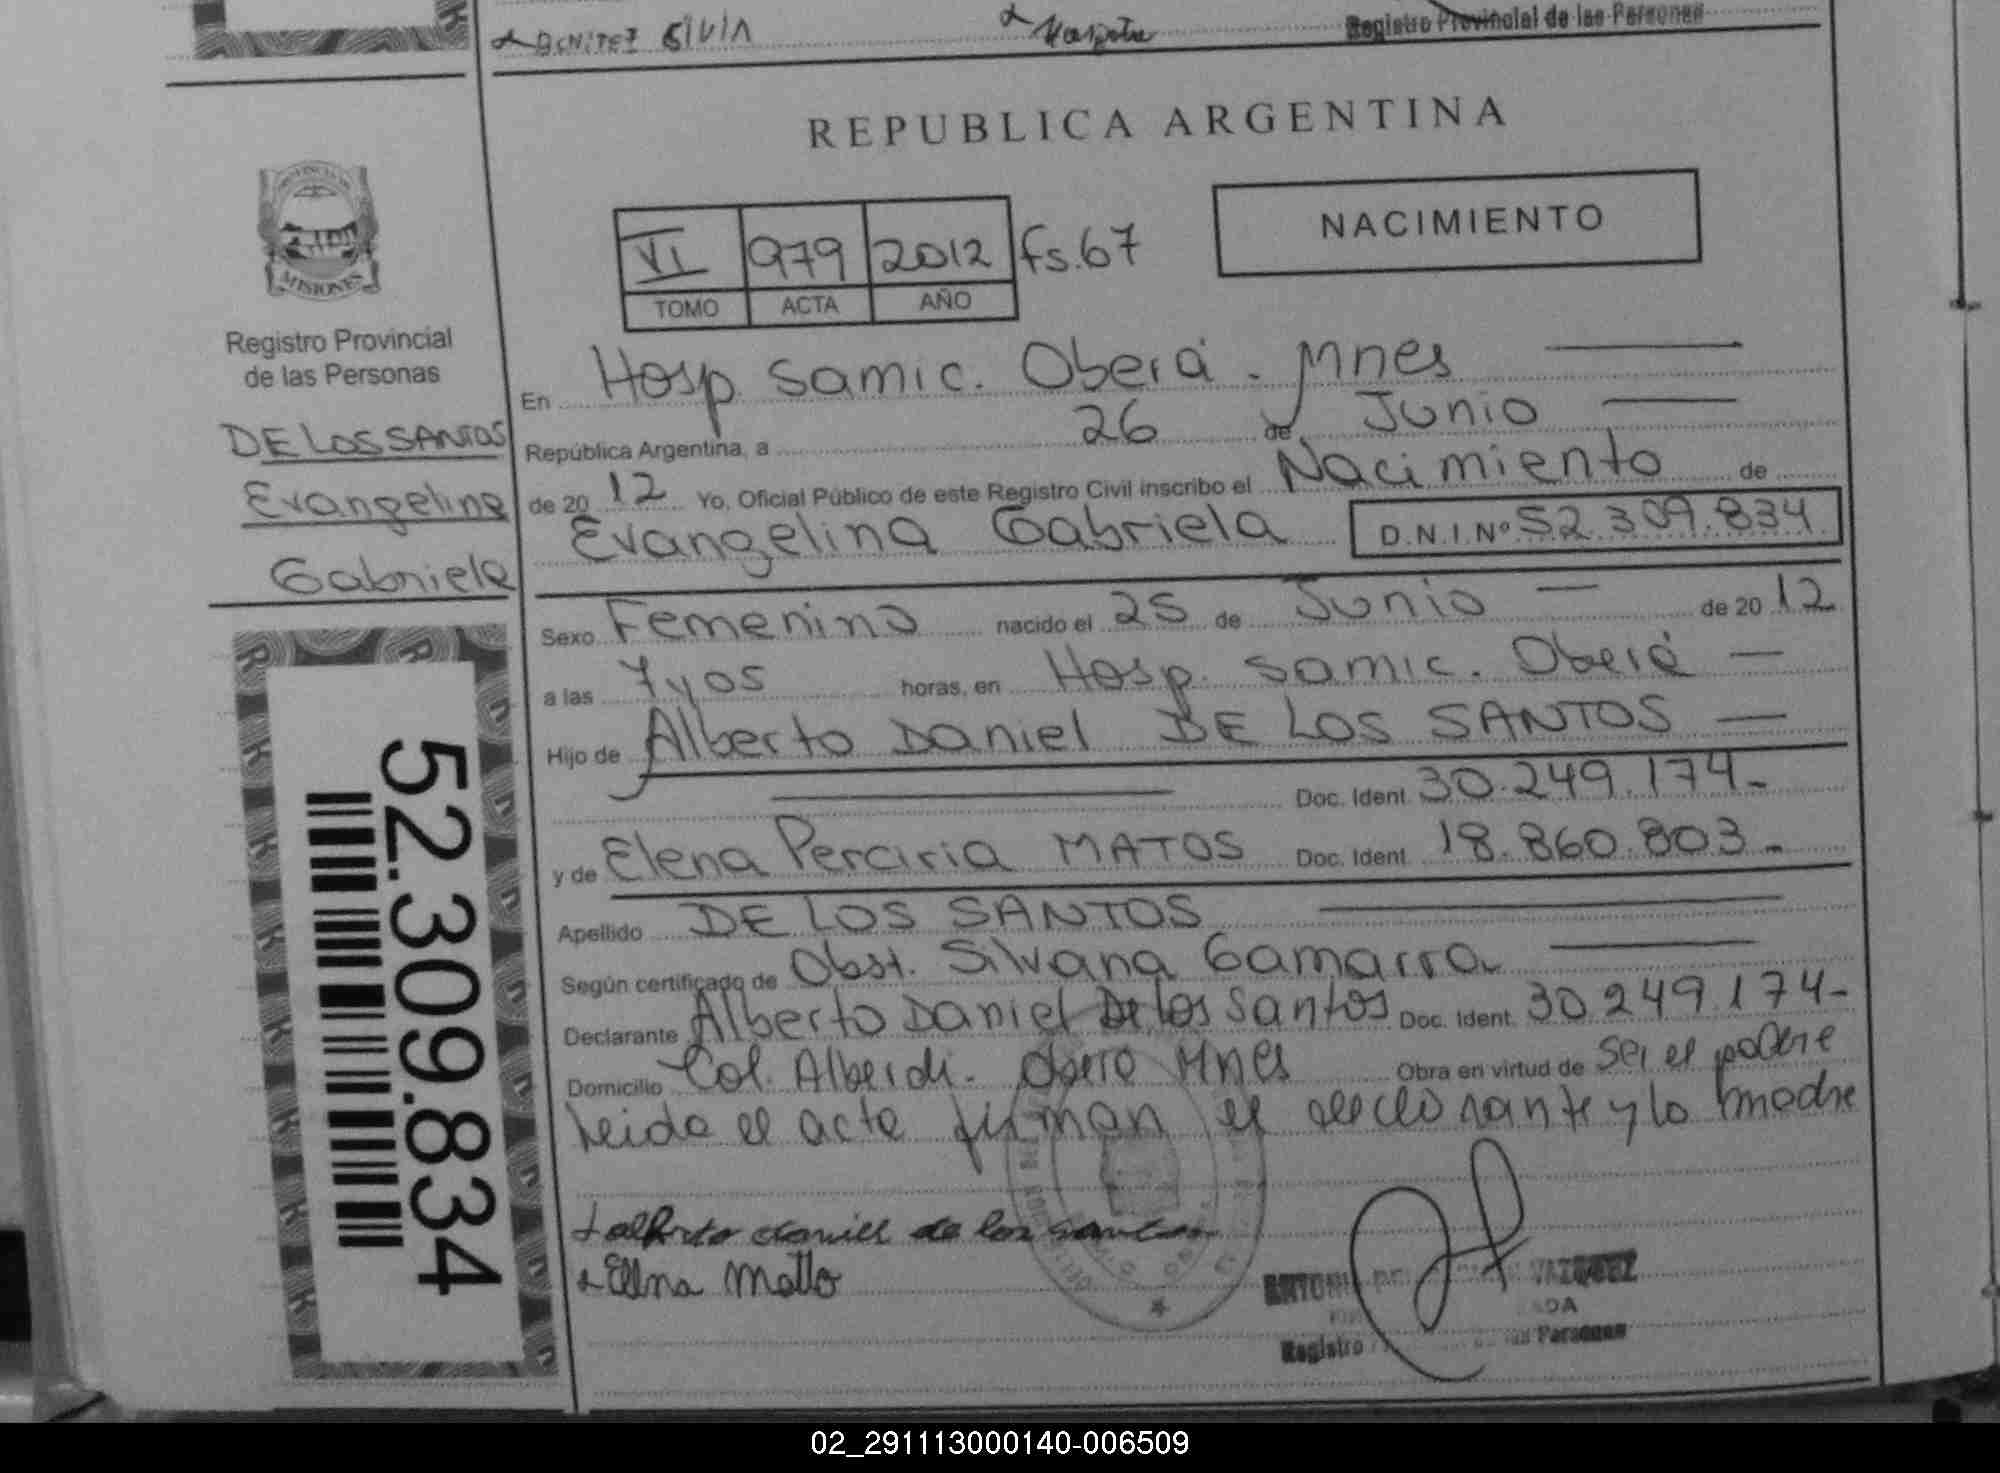 BENITEZ SILVIA
Registro Provincial de las Personas
REPUBLICA ARGENTINA
PROVINCIA DE
MISIONES
Registro Provincial
de las Personas
DE LOS SANTOS
Evangelina
Gabriela
52.309.834
VI 979 2012 fs.67
TOMO ACTA AÑO
NACIMIENTO
En Hosp. Samic. Oberá - Mnes
República Argentina, a 26 de Junio
de 20 12 Yo, Oficial Público de este Registro Civil inscribo el Nacimiento de
Evangelina Gabriela D.N.I.Nº 52.309.834
Sexo Femenino nacido el 25 de Junio de 20 12
a las 7 y 05 horas, en Hosp. Samic. Oberá
Hijo de Alberto Daniel DE LOS SANTOS
Doc. Ident. 30.249.174-
y de Elena Perciria MATOS Doc. Ident. 18.860.803-
Apellido DE LOS SANTOS
Según certificado de Obst. Silvana Gamarra
Declarante Alberto Daniel De los Santos Doc. Ident. 30.249.174-
Domicilio Col. Alberdi - Oberá Mnes Obra en virtud de ser el padre
Leida el acta firman el declarante y la madre
alberto daniel de los santos
Elena Matto
VAZQUEZ
Registro Personas
02_291113000140-006509